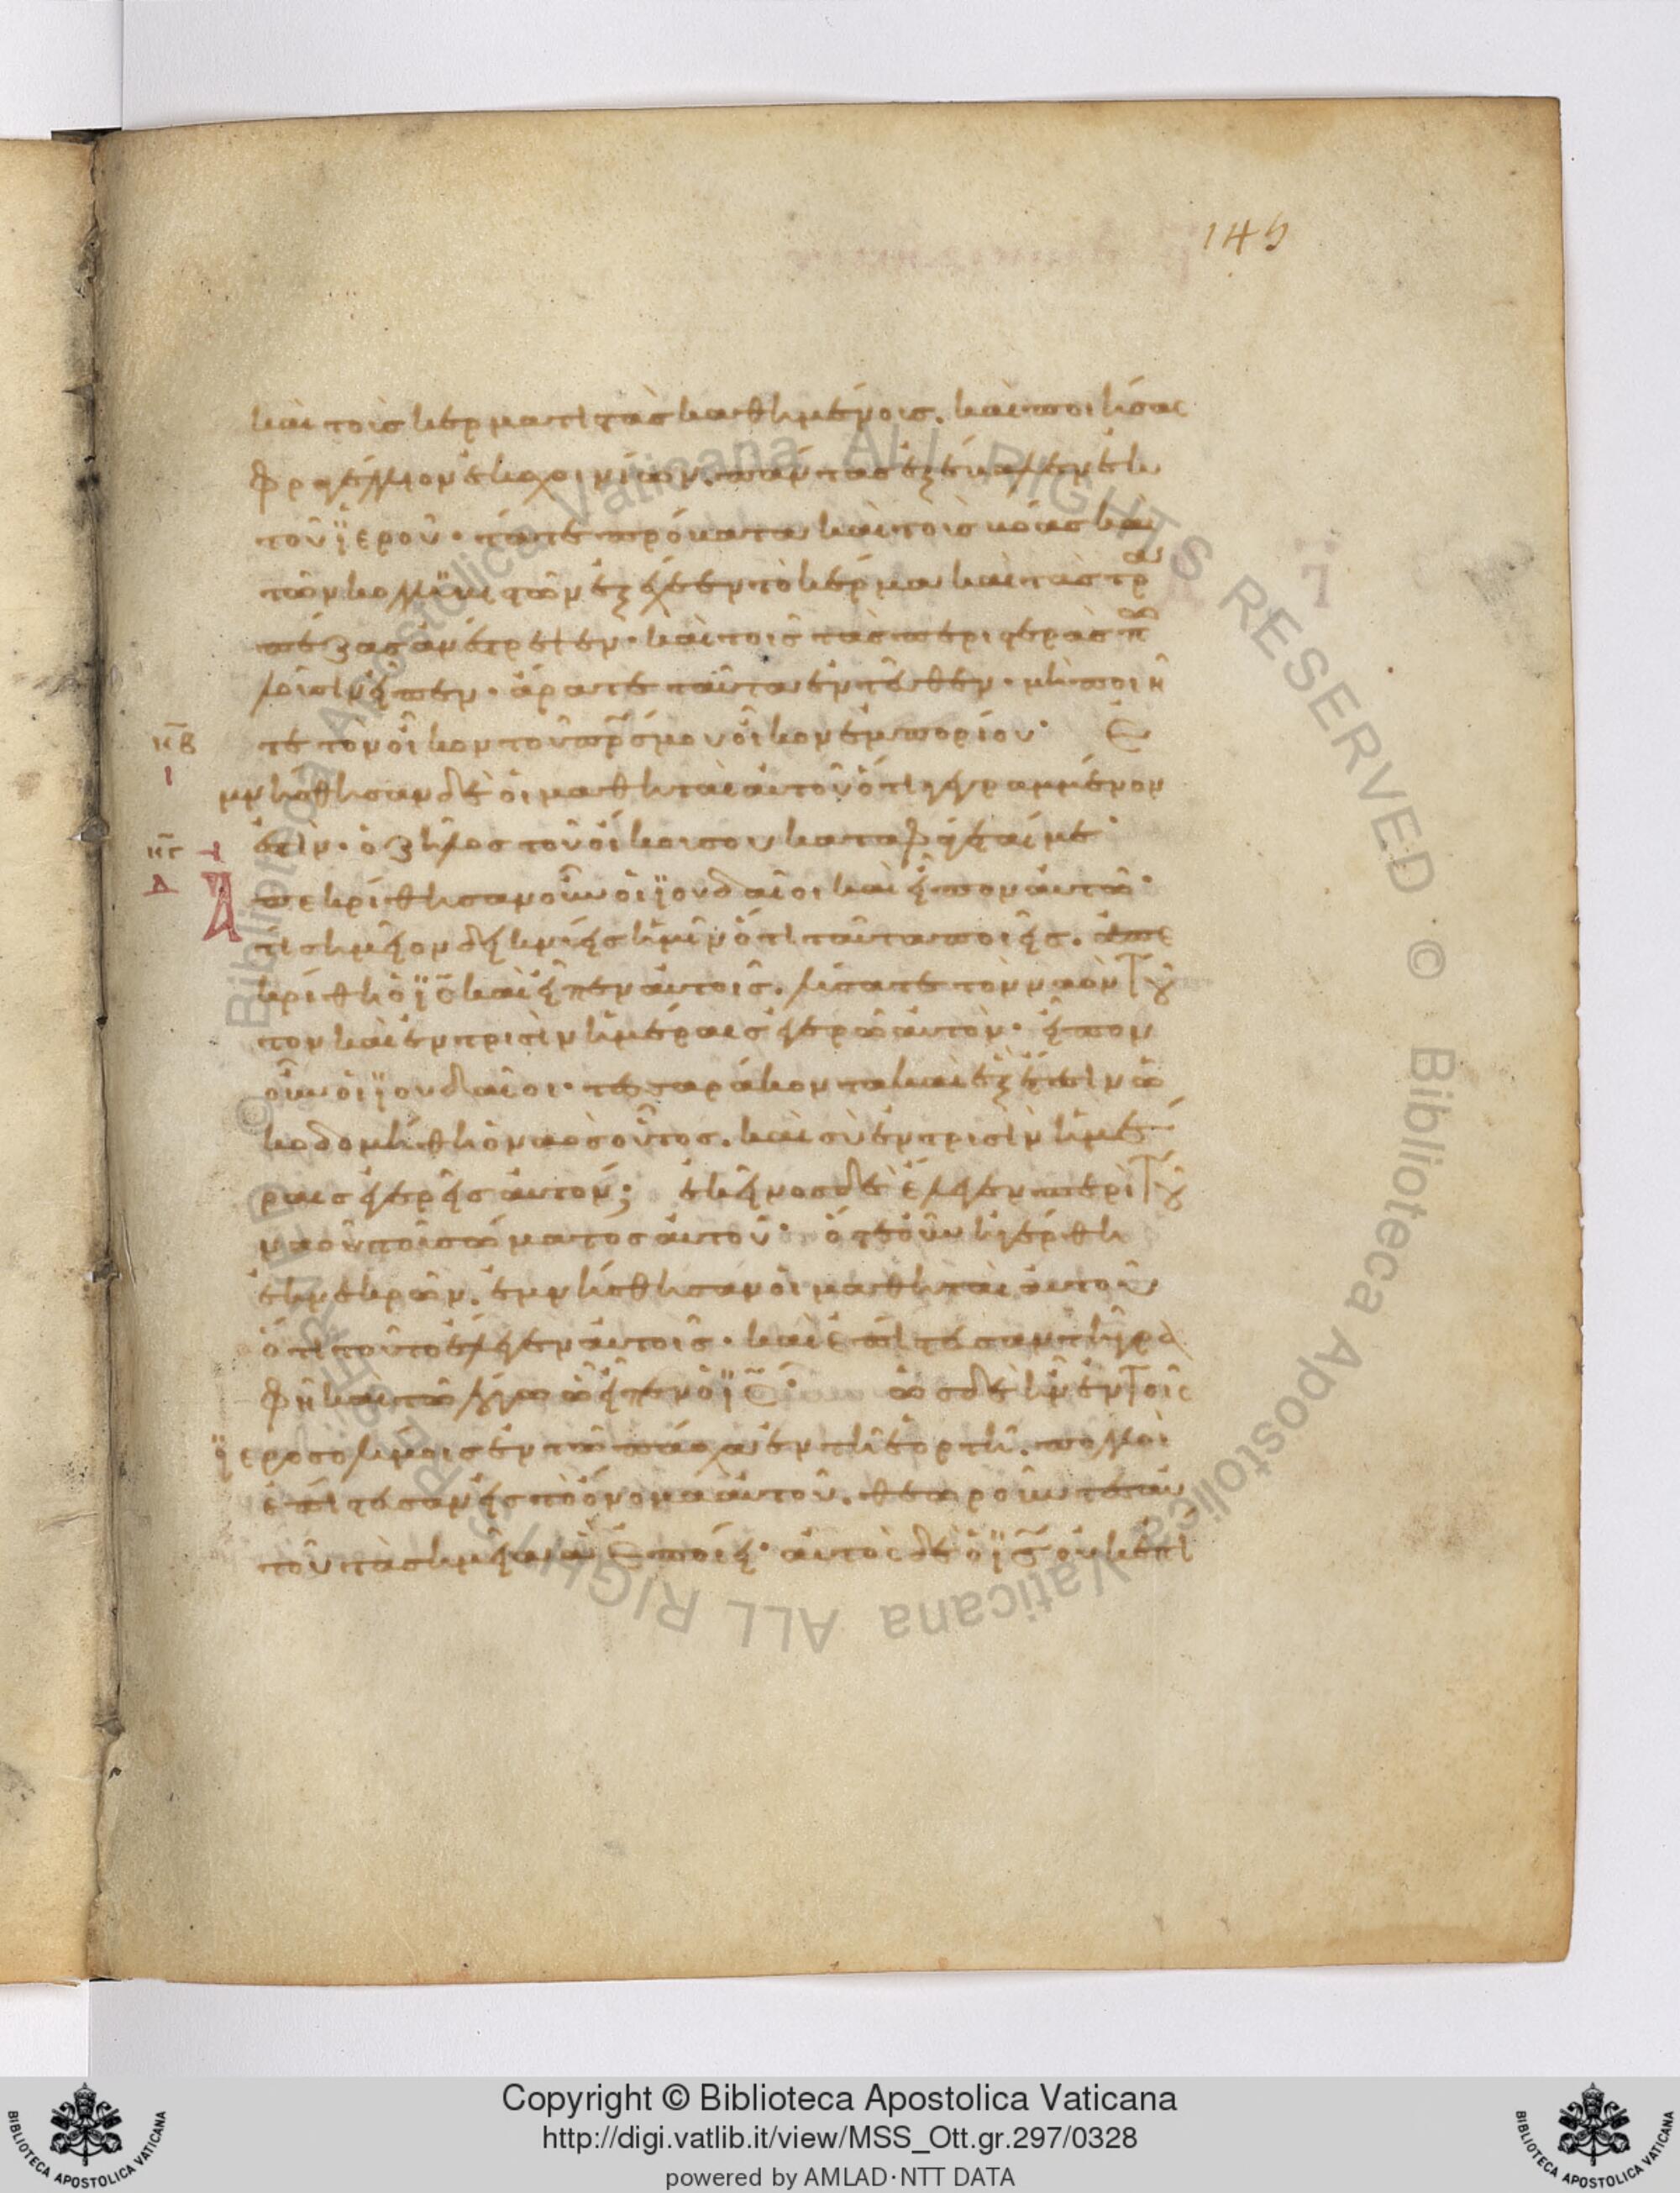 149
καὶ τοὺς κερματιστὰς καθημένους. καὶ ποιήσας
φραγέλλιον ἐκ σχοινίων. πάντας ἐξέβαλεν ἐκ
τοῦ ϊεροῦ· τά τε πρόβατα καὶ τοὺς βόας καὶ
τῶν κολλυβιστῶν ἐξέχεεν τὸ κέρμα καὶ τὰς τρα
πέζας ἀνέστρεψεν· καὶ τοῖς τὰς περιστερὰς πω
λοῦσιν εἶπεν· ἄρατε ταῦτα ἐντεῦθεν· μὴ ποιῆ
κβ
ι
τε τὸν οἶκον τοῦ πρ̅ς μου οἶκον ἐμπορίου· Ἐ
μνήσθησαν δὲ οἱ μαθηταὶ αὐτοῦ ὅτι γεγραμμένον
κγ
δ
ἐστὶν· ὁ ζῆλος τοῦ οἴκου σου καταφάγεταί με·
Ἀ
πεκρίθησαν οὖν οἱ ϊουδαῖοι καὶ εἶπον αὐτῶ·
τί σημεῖον δεικνύεις ἡμῖν ὅτι ταῦτα ποιεῖς. ἀπε
κρίθη ὁ ϊς̅ καὶ εἶπεν αὐτοῖς. λύσατε τὸν ναὸν τοῦ
τον καὶ ἐν τρισὶν ἡμέραις ἐγερῶ αὐτὸν· εἶπον
οὖν οἱ ϊουδαῖοι· τεσσαράκοντα καὶ ἓξ ἔτεσιν ὠ
κοδομήθη ὁ ναὸς οὗτος. καὶ σὺ ἐν τρισὶν ἡμέ
ραις ἐγερεῖς αὐτόν; ἐκεῖνος δὲ ἔλεγεν περὶ τοῦ
ναοῦ τοῦ σώματος αὐτοῦ· ὅτε οὖν ἠγέρθη
ἐκ νεκρῶν. ἐμνήσθησαν οἱ μαθηταὶ αὐτοῦ
ὅτι τοῦτο ἔλεγεν αὐτοῖς· καὶ ἐπίστευσαν τῆ γρα
φῆ καὶ τῶ λόγω ὧ εἶπεν ὁ ϊς̅· ὡς δὲ ἦν ἐν τοῖς
ϊεροσολύμοις ἐν τῶ πάσχα ἐν τῆ ἑορτῆ. πολλοὶ
ἐπίστευσαν εἰς τὸ ὄνομα αὐτοῦ. θεωροῦντες αὐ
τοῦ τὰ σημεῖα ἃ ἐποίει· αὐτὸς δὲ ὁ ϊς̅ οὐκ ἐπί
Copyright © Biblioteca Apostolica Vaticana
http://digi.vatlib.it/view/MSS_Ott.gr.297/0328
powered by AMLAD·NTT DATA